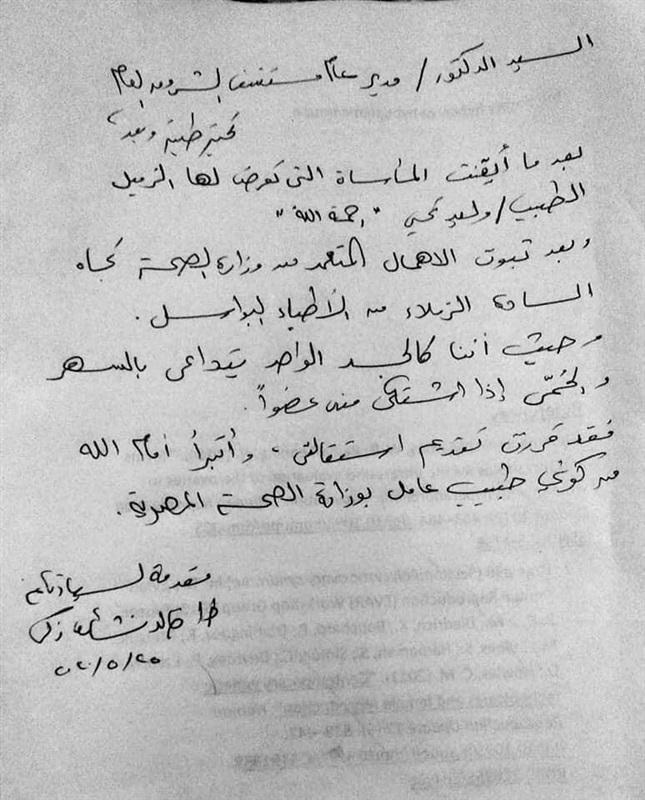 السيد الدكتور/ مدير عام مستشفى الشروق العام
تحية طيبة وبعد،
بعد ما أيقنت المأساة التى تعرض لها الزميل
الطبيب/ وليد يحيى "رحمة الله"
وبعد ثبوت الاهمال المتعمد من وزارة الصحة تجاه
السادة الزملاء من الأطباء البواسل.
وحيث أننا كالجسد الواحد يتداعى بالسهر
والحُمّى إذا اشتكى منه عضواً.
فقد قررت تقديم استقالتى، وأتبرأ أمام الله
من كونى طبيب عامل بوزارة الصحة المصرية.
مقدمة لسيادتكم